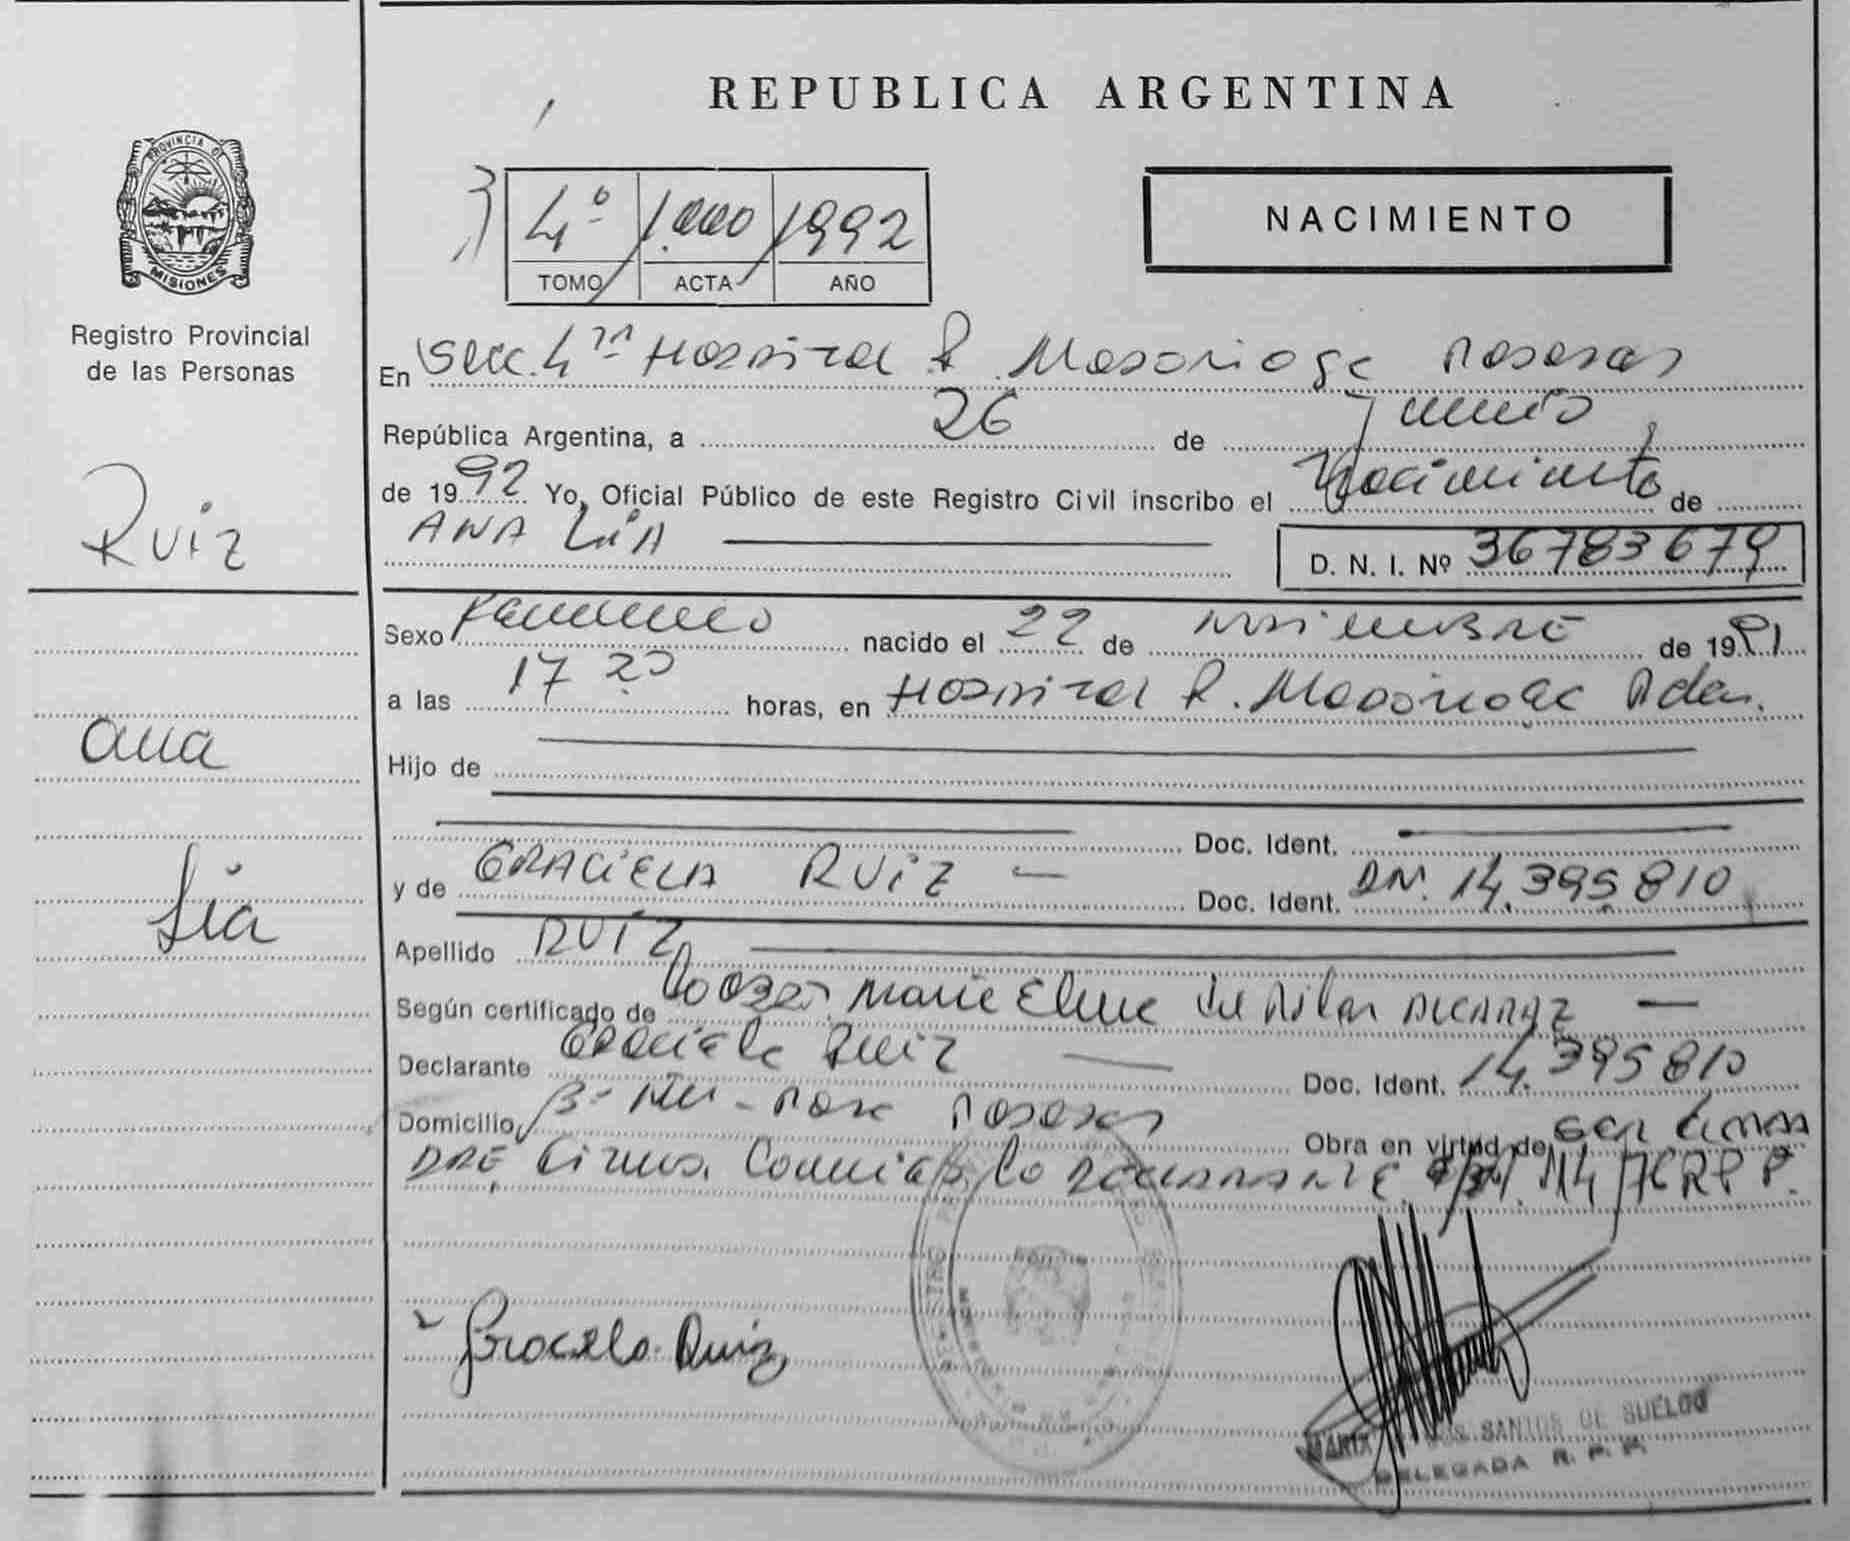 REPUBLICA ARGENTINA
PROVINCIA DE
MISIONES
Registro Provincial
de las Personas
4º 1.000 1992
TOMO ACTA AÑO
NACIMIENTO
En Secc. 4ta Hospital R. Madariaga Posadas
República Argentina, a 26 de junio
de 1992 Yo, Oficial Público de este Registro Civil inscribo el Nacimiento de
Ruiz
ANA LíA D. N. I. Nº 36783679
Sexo Femenino nacido el 22 de noviembre de 1991
a las 17 20 horas, en Hospital R. Madariaga Pdas.
Ana
Hijo de
Doc. Ident.
Lía
y de GRACIELA RUIZ Doc. Ident. DNI. 14.395.810
Apellido RUIZ
Según certificado de María del Pilar ALCARAZ
Declarante Graciela Ruiz Doc. Ident. 14.395810
Domicilio Posadas Obra en virtud de ser
DRE la declarante 114/76 R P P.
Graciela Ruiz
MARIA SANTOS DE SUELDO
DELEGADA R. P. P.